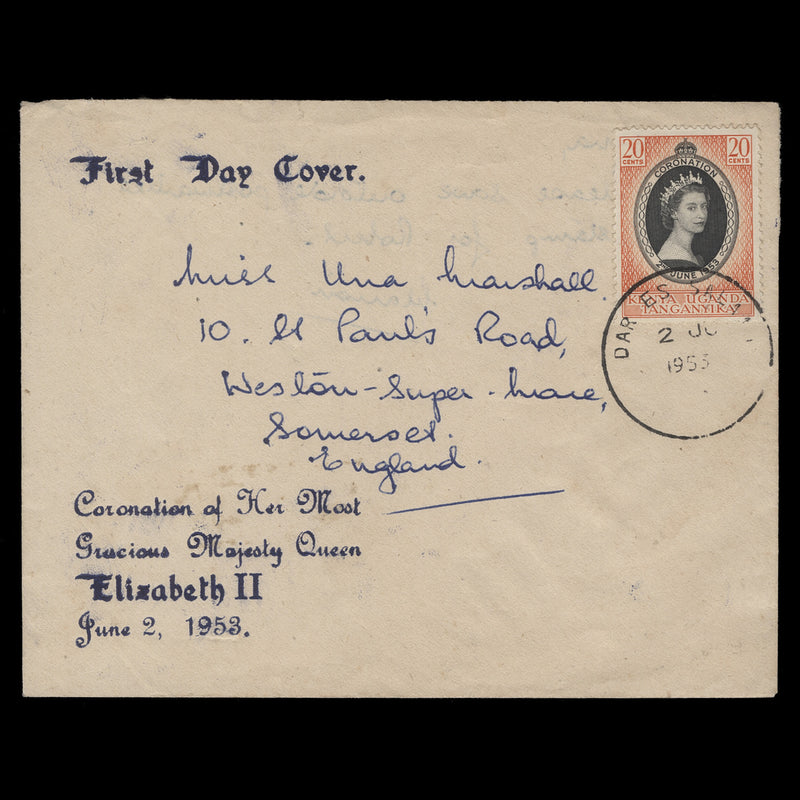 First Day Cover.
20 CENTS 20 CENTS
CORONATION
2 JUNE 1953
KENYA UGANDA
TANGANYIKA
DAR ES SALAAM
2 JU
1953
Miss Una Marshall.
10. St Paul's Road,
Weston-Super-Mare,
Somerset.
England.
Coronation of Her Most
Gracious Majesty Queen
Elizabeth II
June 2, 1953.